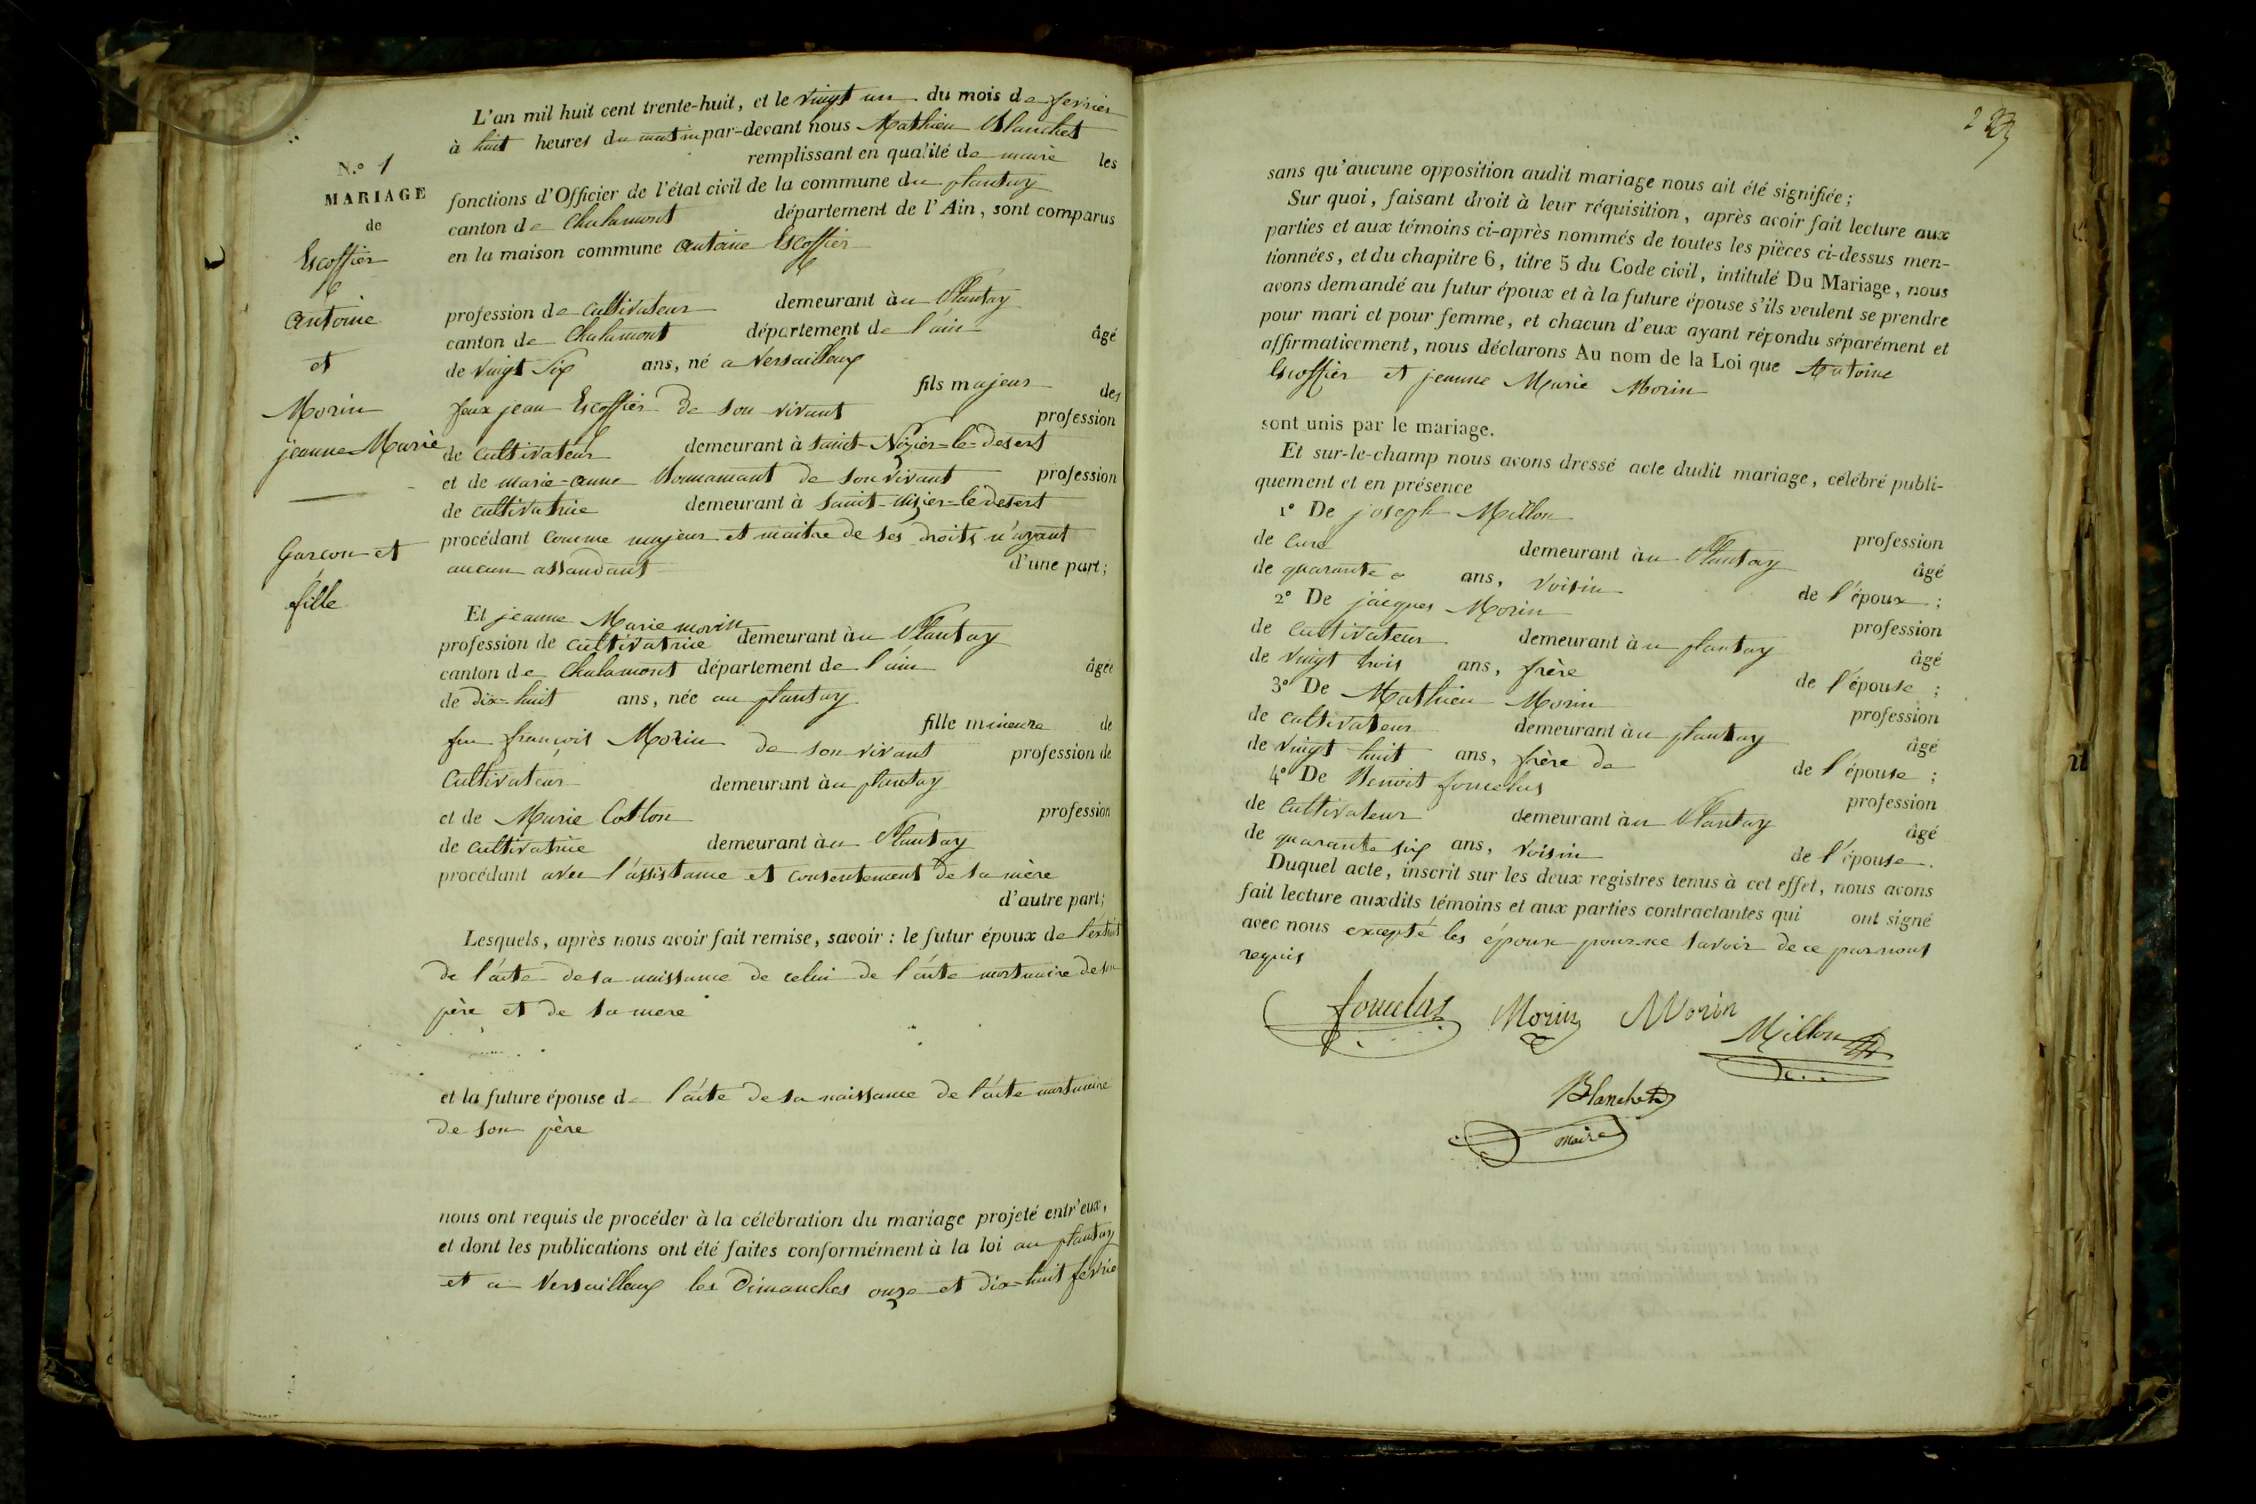 N.º 1
MARIAGE
de
Escoffier
antoine
et
Morin
jeanne Marie
Garcon et
fille
L'an mil huit cent trente-huit, et le vingt un du mois de fevrier
à huit heures du matin par-devant nous Mathieu Blanchet
remplissant en qualité de maire les
fonctions d'Officier de l'état civil de la commune du plantay
canton de Chalamont département de l'Ain, sont comparus
en la maison commune antoine Escoffier
profession de cultivateur demeurant àu Plantay
canton de Chalamont département de l'ain âgé
de vingt six ans, né a Versailleux
fils majeur des
feux jean Escoffier de son vivant profession
de cultivateur demeurant à saint-Nizier-le-desert
et de marie-anne de son vivant profession
de cultivatrice demeurant à saint-nizier-le desert
procédant comme majeur et maitre de ses droits n'ayant
aucun assandant d'une part;
Et jeanne Marie morin
profession de cultivatrice demeurant àu Plantay
canton de Chalamont département de l'ain âgée
de dix-huit ans, née au plantay
fille mineure de
feu françois Morin de son vivant profession de
Cultivateur demeurant àu plantay
et de Marie Cotton profession
de cultivatrice demeurant àu Plantay
procédant avec l'assistance et consentement de sa mère
d'autre part;
Lesquels, après nous avoir fait remise, savoir : le futur époux de l'extrait
de l'acte de sa naissance de celui de l'acte mortuaire de son
père et de sa mere
et la future épouse de l'acte de sa naissance de l'acte mortuaire
de son père
nous ont requis de procéder à la célébration du mariage projeté entr'eux,
et dont les publications ont été faites conformément à la loi au plantay
et a Versailleux les Dimanches onze et dix-huit févrie
sans qu'aucune opposition audit mariage nous ait été signifiée;
Sur quoi, faisant droit à leur réquisition, après avoir fait lecture aux
parties et aux témoins ci-après nommés de toutes les pièces ci-dessus men-
tionnées, et du chapitre 6, titre 5 du Code civil, intitulé Du Mariage, nous
avons demandé au futur époux et à la future épouse s'ils veulent se prendre
pour mari et pour femme, et chacun d'eux ayant répondu séparément et
affirmativement, nous déclarons Au nom de la Loi que Antoine
Escoffier et jeanne Marie Morin
sont unis par le mariage.
Et sur-le-champ nous avons dressé acte dudit mariage, célébré publi-
quement et en présence
1º De joseph Millon profession
de curé demeurant àu Plantay âgé
de quarante ans, voisin de l'époux;
2º De jacques Morin profession
de cultivateur demeurant àu plantay âgé
de vingt trois ans, frère de l'épouse;
3º De Mathieu Morin profession
de cultivateur demeurant àu plantay âgé
de vingt huit ans, frère de de l'épouse;
4º De Benoit profession
de cultivateur demeurant àu Plantay âgé
de quarante six ans, voisin de l'épouse.
Duquel acte, inscrit sur les deux registres tenus à cet effet, nous avons
fait lecture auxdits témoins et aux parties contractantes qui ont signé
avec nous excepté les époux pour ne savoir de ce par nous
requis
Morin Morin Millon
Blanchet
maire